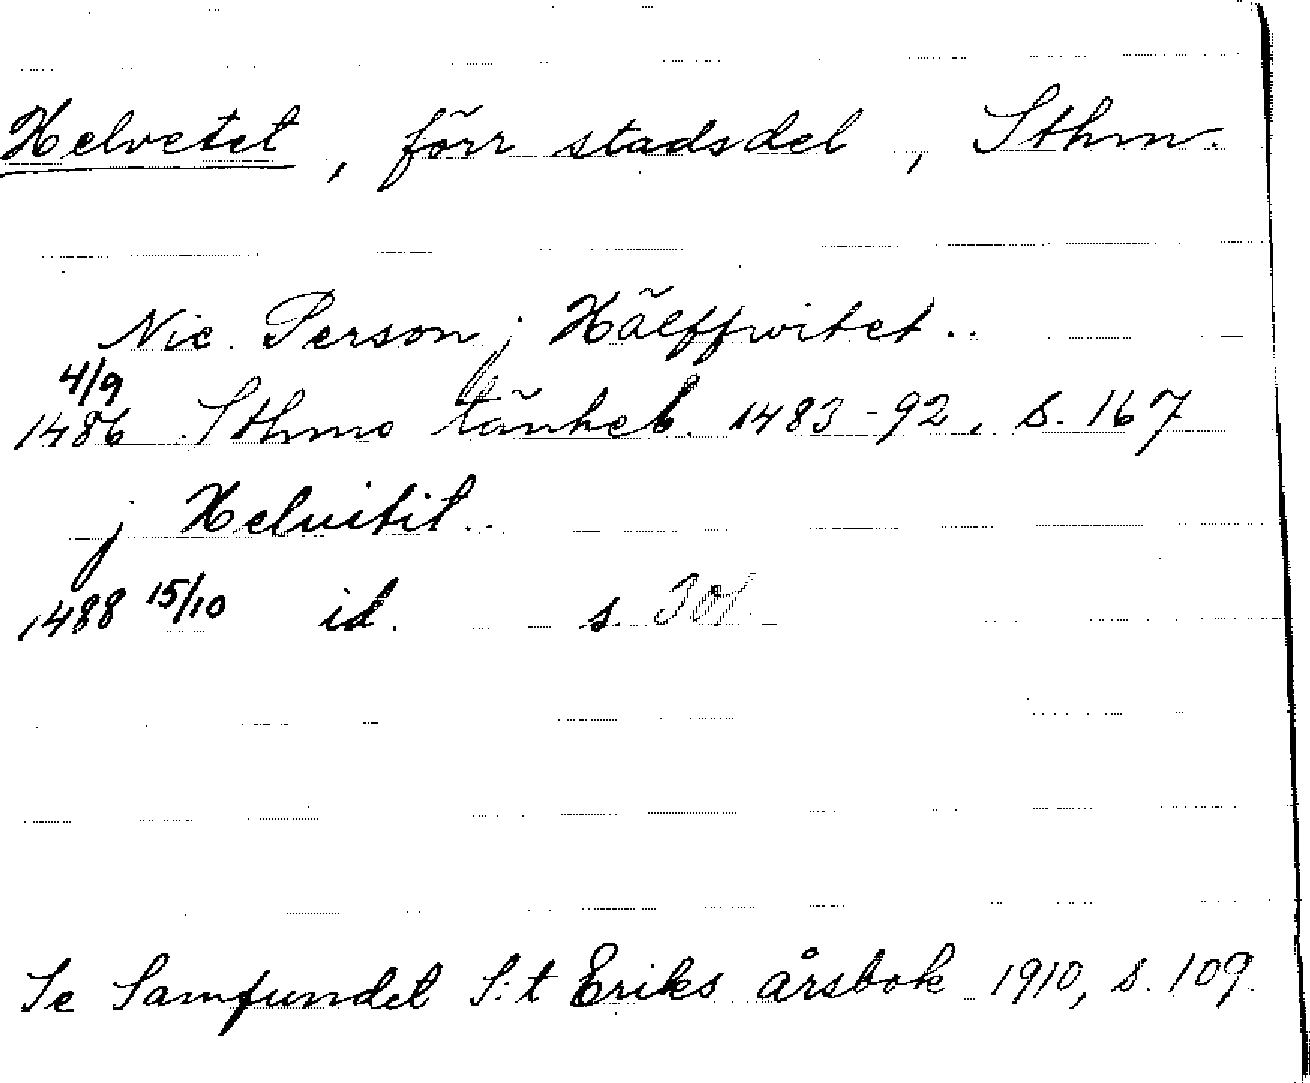 Helvetet, förr stadsdel, Sthm.
Nic. Person j Hälffwitet..
4/9
1486 Sthms tänkeb. 1483-92, s. 167
j Heluitit..
1488 15/10 id. s.
Se Samfundet S:t Eriks årsbok 1910, s. 109.